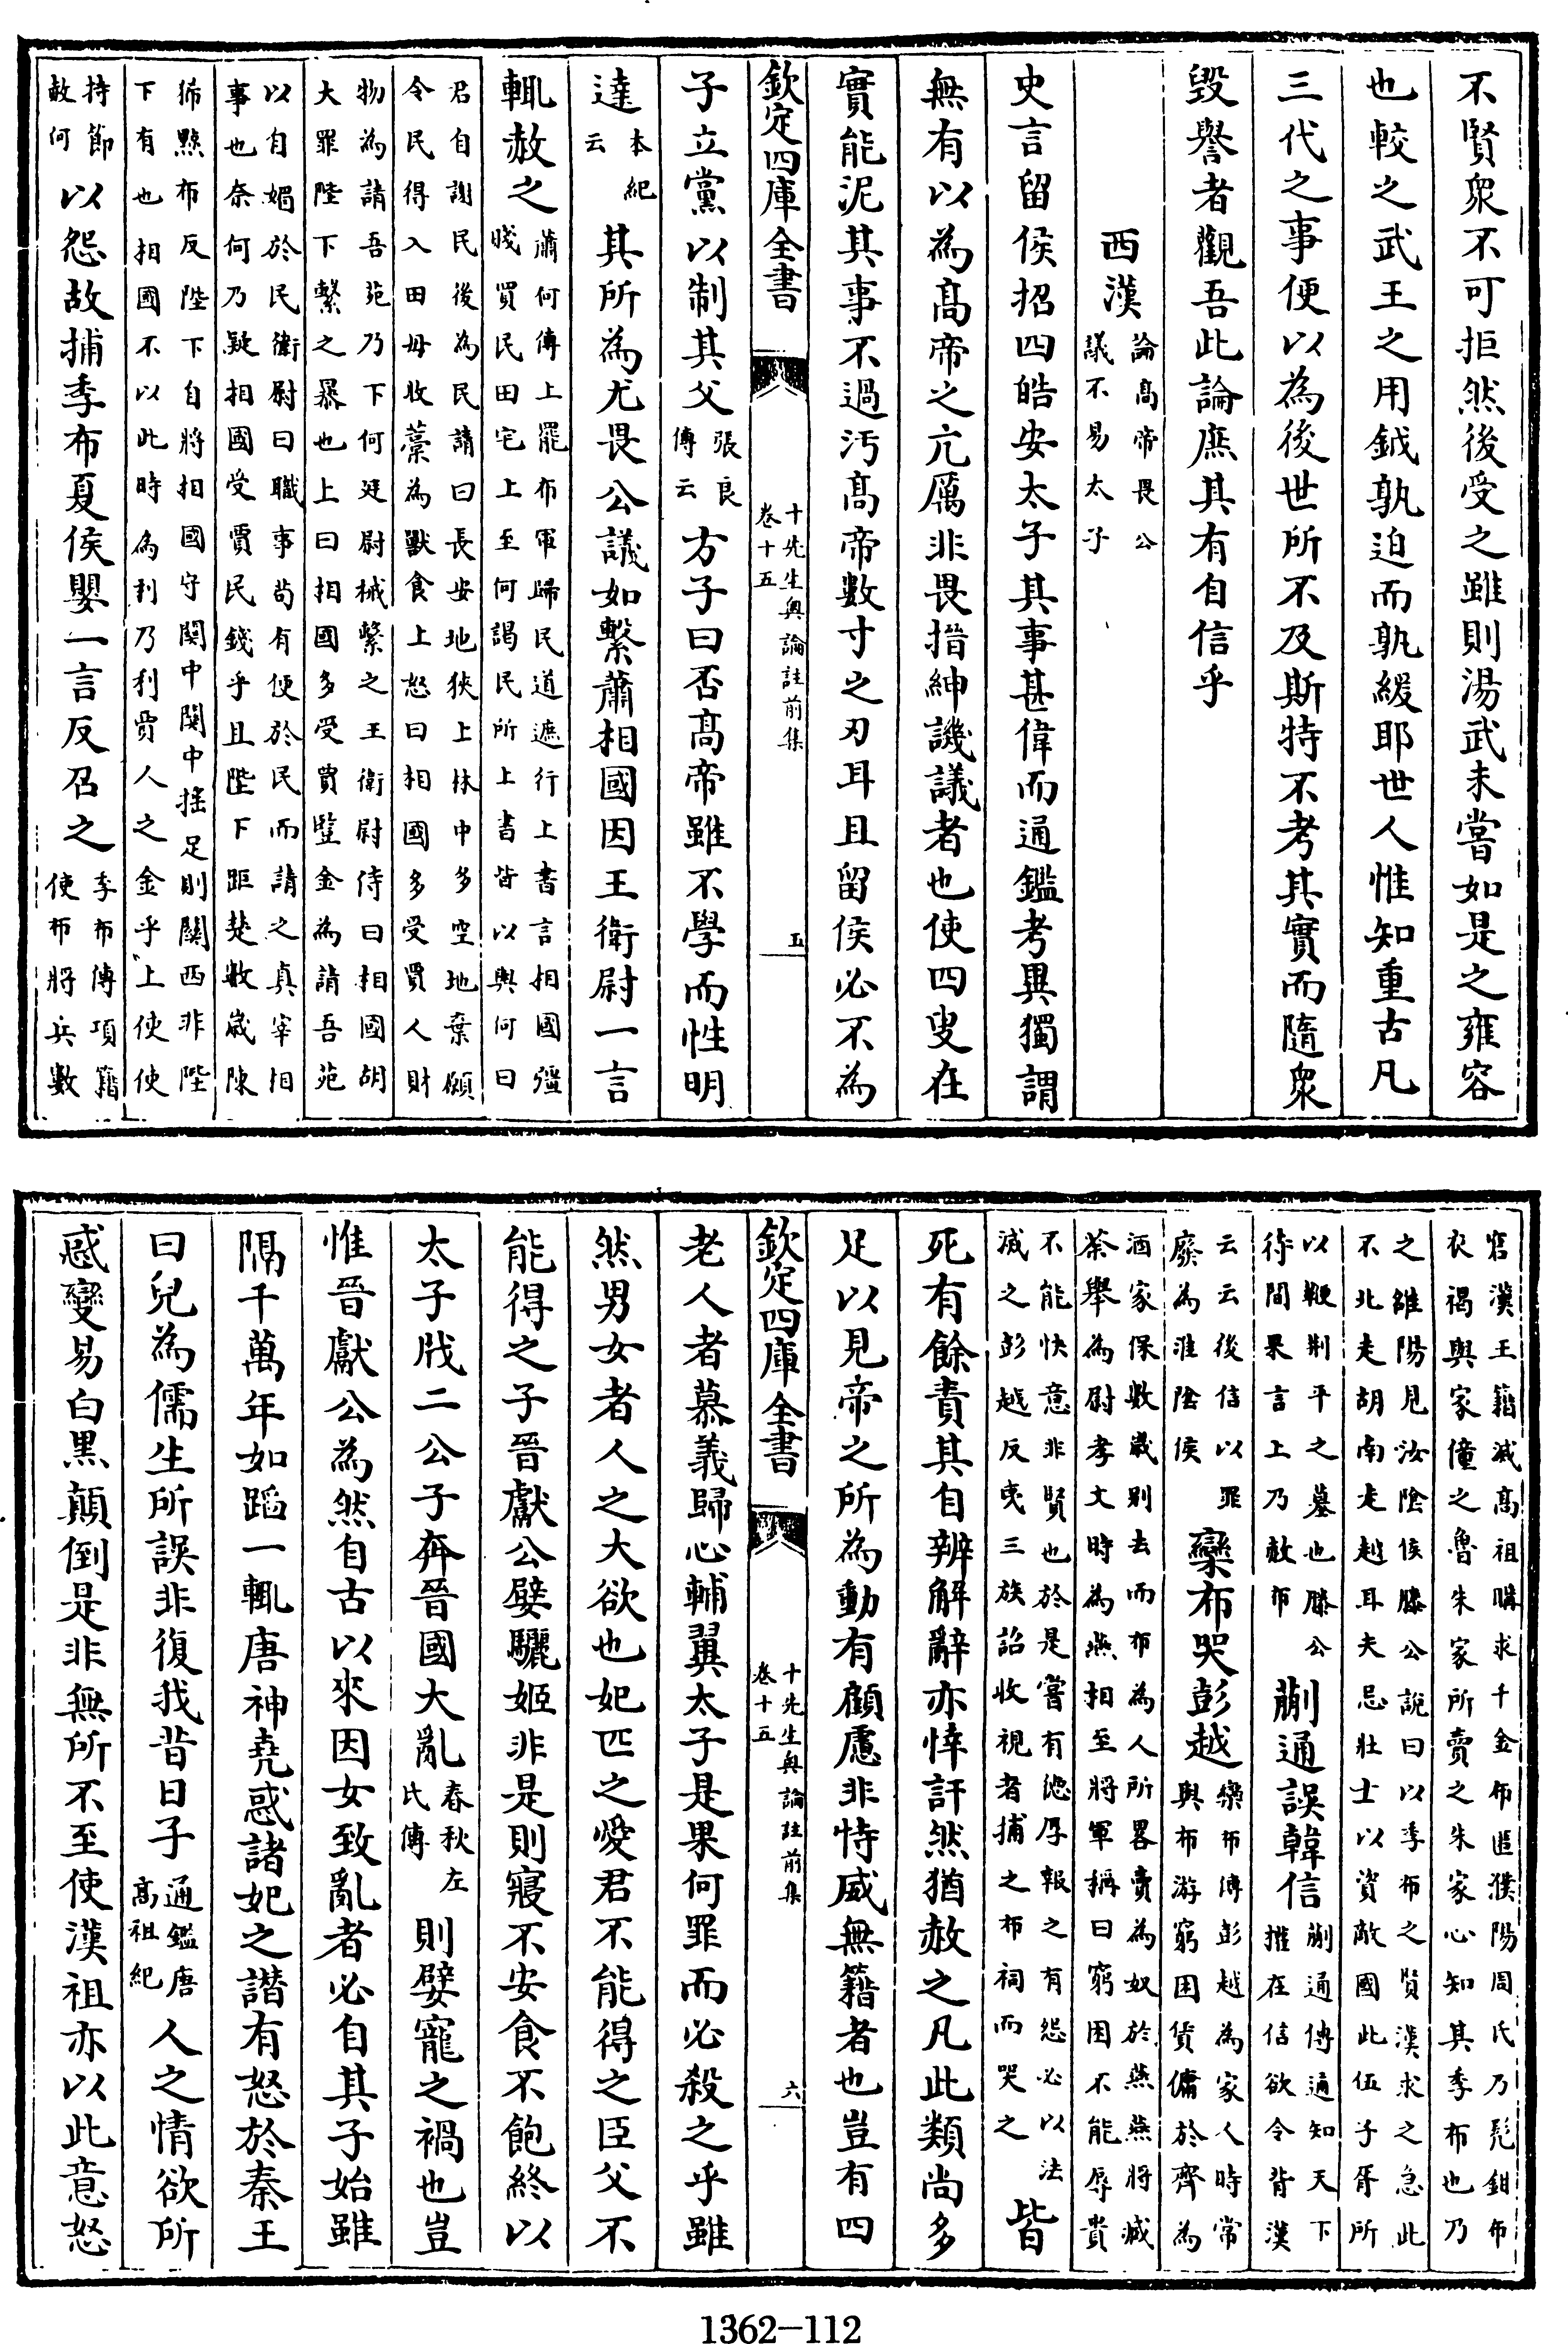 不賢衆不可拒然後受之雖則湯武未嘗如是之雍容
也較之武王之用鉞孰迫而孰緩耶世人惟知重古凡
三代之事便以為後世所不及斯特不考其實而隨衆
毀譽者觀吾此論庶其有自信乎
西漢
論高帝畏公
議不易太子
史言留侯招四皓安太子其事甚偉而通鑑考異獨謂
無有以為高帝之亢厲非畏搢紳譏議者也使四叟在
實能泥其事不過汚高帝數寸之刃耳且留侯必不為
欽定四庫全書
十先生奧論註前集
卷十五
五
子立黨以制其父
張良
傳云
方子曰否高帝雖不學而性明
達
本紀
云
其所為尤畏公議如繫蕭相國因王衛尉一言
輒赦之
蕭何傳上罷布軍歸民道遮行上書言相國彊
賤買民田宅上至何謁民所上書皆以與何曰
君自謝民後為民請曰長安地狹上林中多空地棄願
令民得入田毋收藁為獸食上怒曰相國多受賈人財
物為請吾苑乃下何廷尉械繫之王衛尉侍曰相國胡
大罪陛下繫之暴也上曰相國多受賈豎金為請吾苑
以自媚於民衛尉曰職事茍有便於民而請之真宰相
事也奈何乃疑相國受賈民錢乎且陛下距楚數歲陳
狶黥布反陛下自將相國守関中関中搖足則關西非陛
下有也相國不以此時為利乃利賈人之金乎上使使
持節
赦何
以怨故捕季布夏侯嬰一言反召之
季布傳項籍
使布將兵數
窘漢王籍滅高祖購求千金布匿濮陽周氏乃髠鉗布
衣褐與家僮之魯朱家所賣之朱家心知其季布也乃
之雒陽見汝陰侯滕公說曰以季布之賢漢求之急此
不北走胡南走越耳夫忌壯士以資敵國此伍子胥所
以鞭荆平之墓也滕公
待間果言上乃赦布
蒯通誤韓信
蒯通傳通知天下
摧在信欲令背漢
云云後信以罪
廢為淮陰侯
欒布哭彭越
欒布傳彭越為家人時常
與布游窮困賃傭於齊為
酒家保數歲别去而布為人所畧賣為奴於燕燕將臧
荼舉為尉孝文時為燕相至將軍稱曰窮困不能辱貴
不能快意非賢也於是嘗有德厚報之有怨必以法
滅之彭越反夷三族詔收視者捕之布祠而哭之
皆
死有餘責其自辨解辭亦悻訐然猶赦之凡此類尚多
足以見帝之所為動有顧慮非恃威無籍者也豈有四
欽定四庫全書
十先生奧論註前集
卷十五
六
老人者慕義歸心輔翼太子是果何罪而必殺之乎雖
然男女者人之大欲也妃匹之愛君不能得之臣父不
能得之子晉獻公嬖驪姬非是則寢不安食不飽終以
太子戕二公子奔晉國大亂
春秋左
氏傳
則嬖寵之禍也豈
惟晉獻公為然自古以來因女致亂者必自其子始雖
隔千萬年如蹈一輒唐神堯惑諸妃之譖有怒於秦王
曰兒為儒生所誤非復我昔日子
通鑑唐
高祖紀
人之情欲所
惑變易白黑顛倒是非無所不至使漢祖亦以此意怒
1362-112